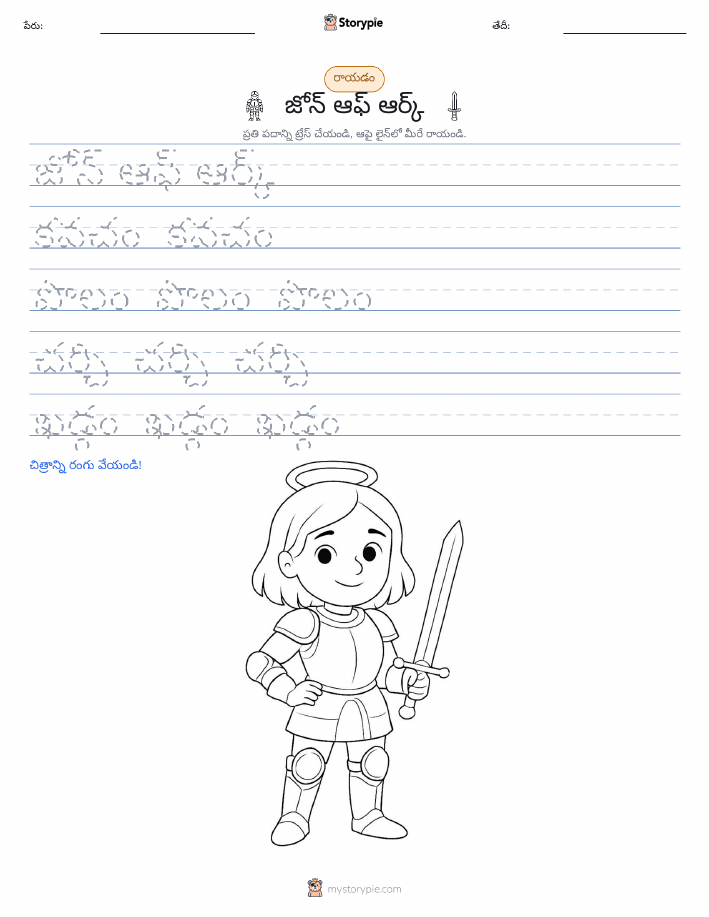 పేరు:
Storypie
తేదీ:
రాయడం
జోన్ ఆఫ్ ఆర్క్
ప్రతి పదాన్ని ట్రేస్ చేయండి, ఆపై లైన్‌లో మీరే రాయండి.
జోన్ ఆఫ్ ఆర్క్
కవచం కవచం
పొలం పొలం పొలం
చర్చి చర్చి చర్చి
ఖడ్గం ఖడ్గం ఖడ్గం
చిత్రాన్ని రంగు వేయండి!
mystorypie.com